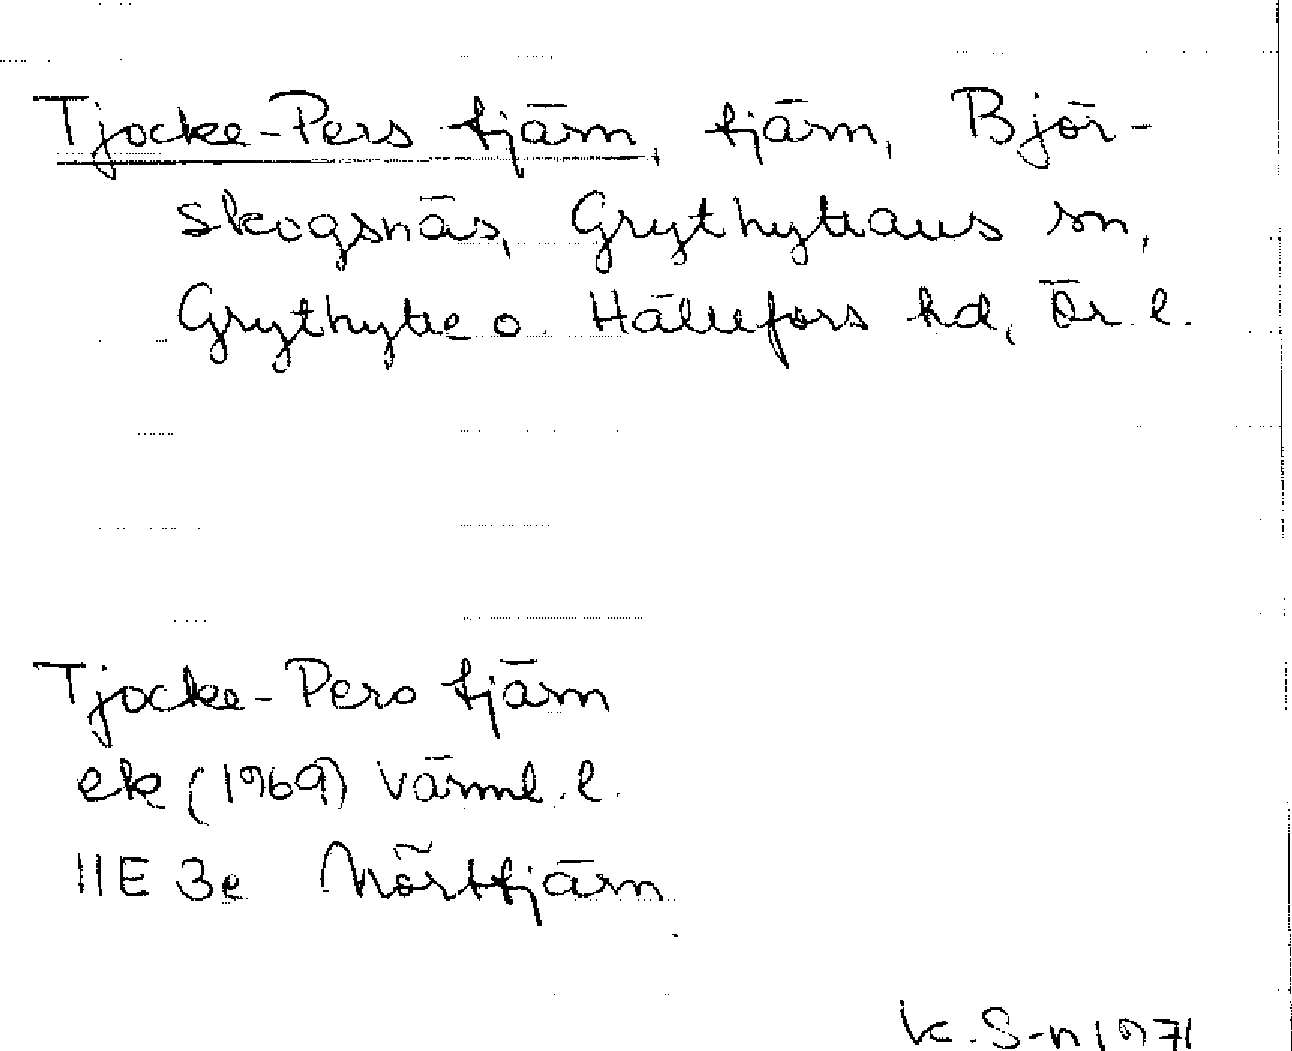 Tjocke-Pers tjärn, tjärn, Björ-
skogsnäs, Grythyttans sn,
Grythytte o. Hällefors hd, Ör. l.
Tjocke-Pers tjärn
ek (1969) Värml. l.
11E 3e Mörttjärn
K. S-n 1971